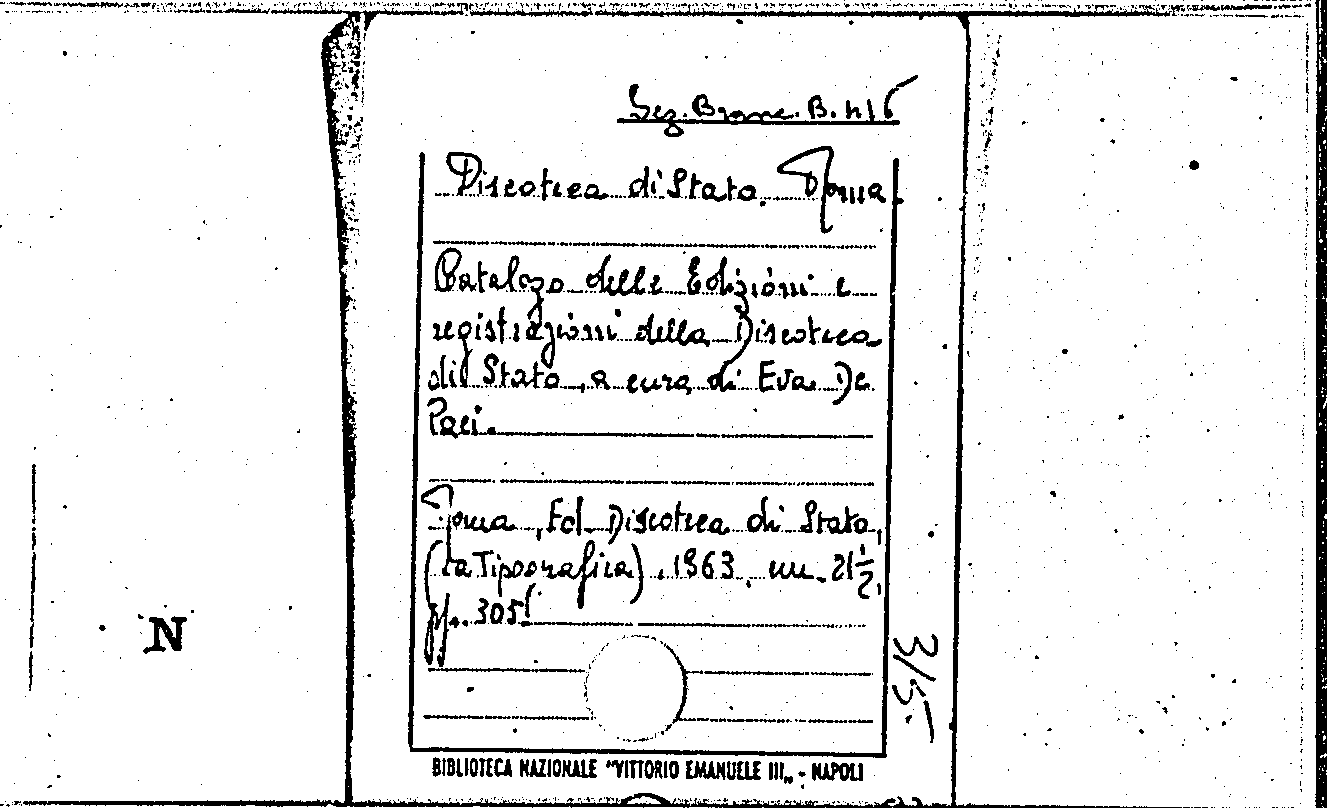 Sez. Branc. B. 416
Discoteca di Stato. Roma.
Catalogo delle Edizioni e
registrazioni della Discoteca
di Stato, a cura di Eva De
Paci.
Roma, Ed. Discoteca di Stato,
(la Tipografica), 1963, cm. 21½,
pp. 305.
N
3/5.
BIBLIOTECA NAZIONALE "VITTORIO EMANUELE III„ - NAPOLI